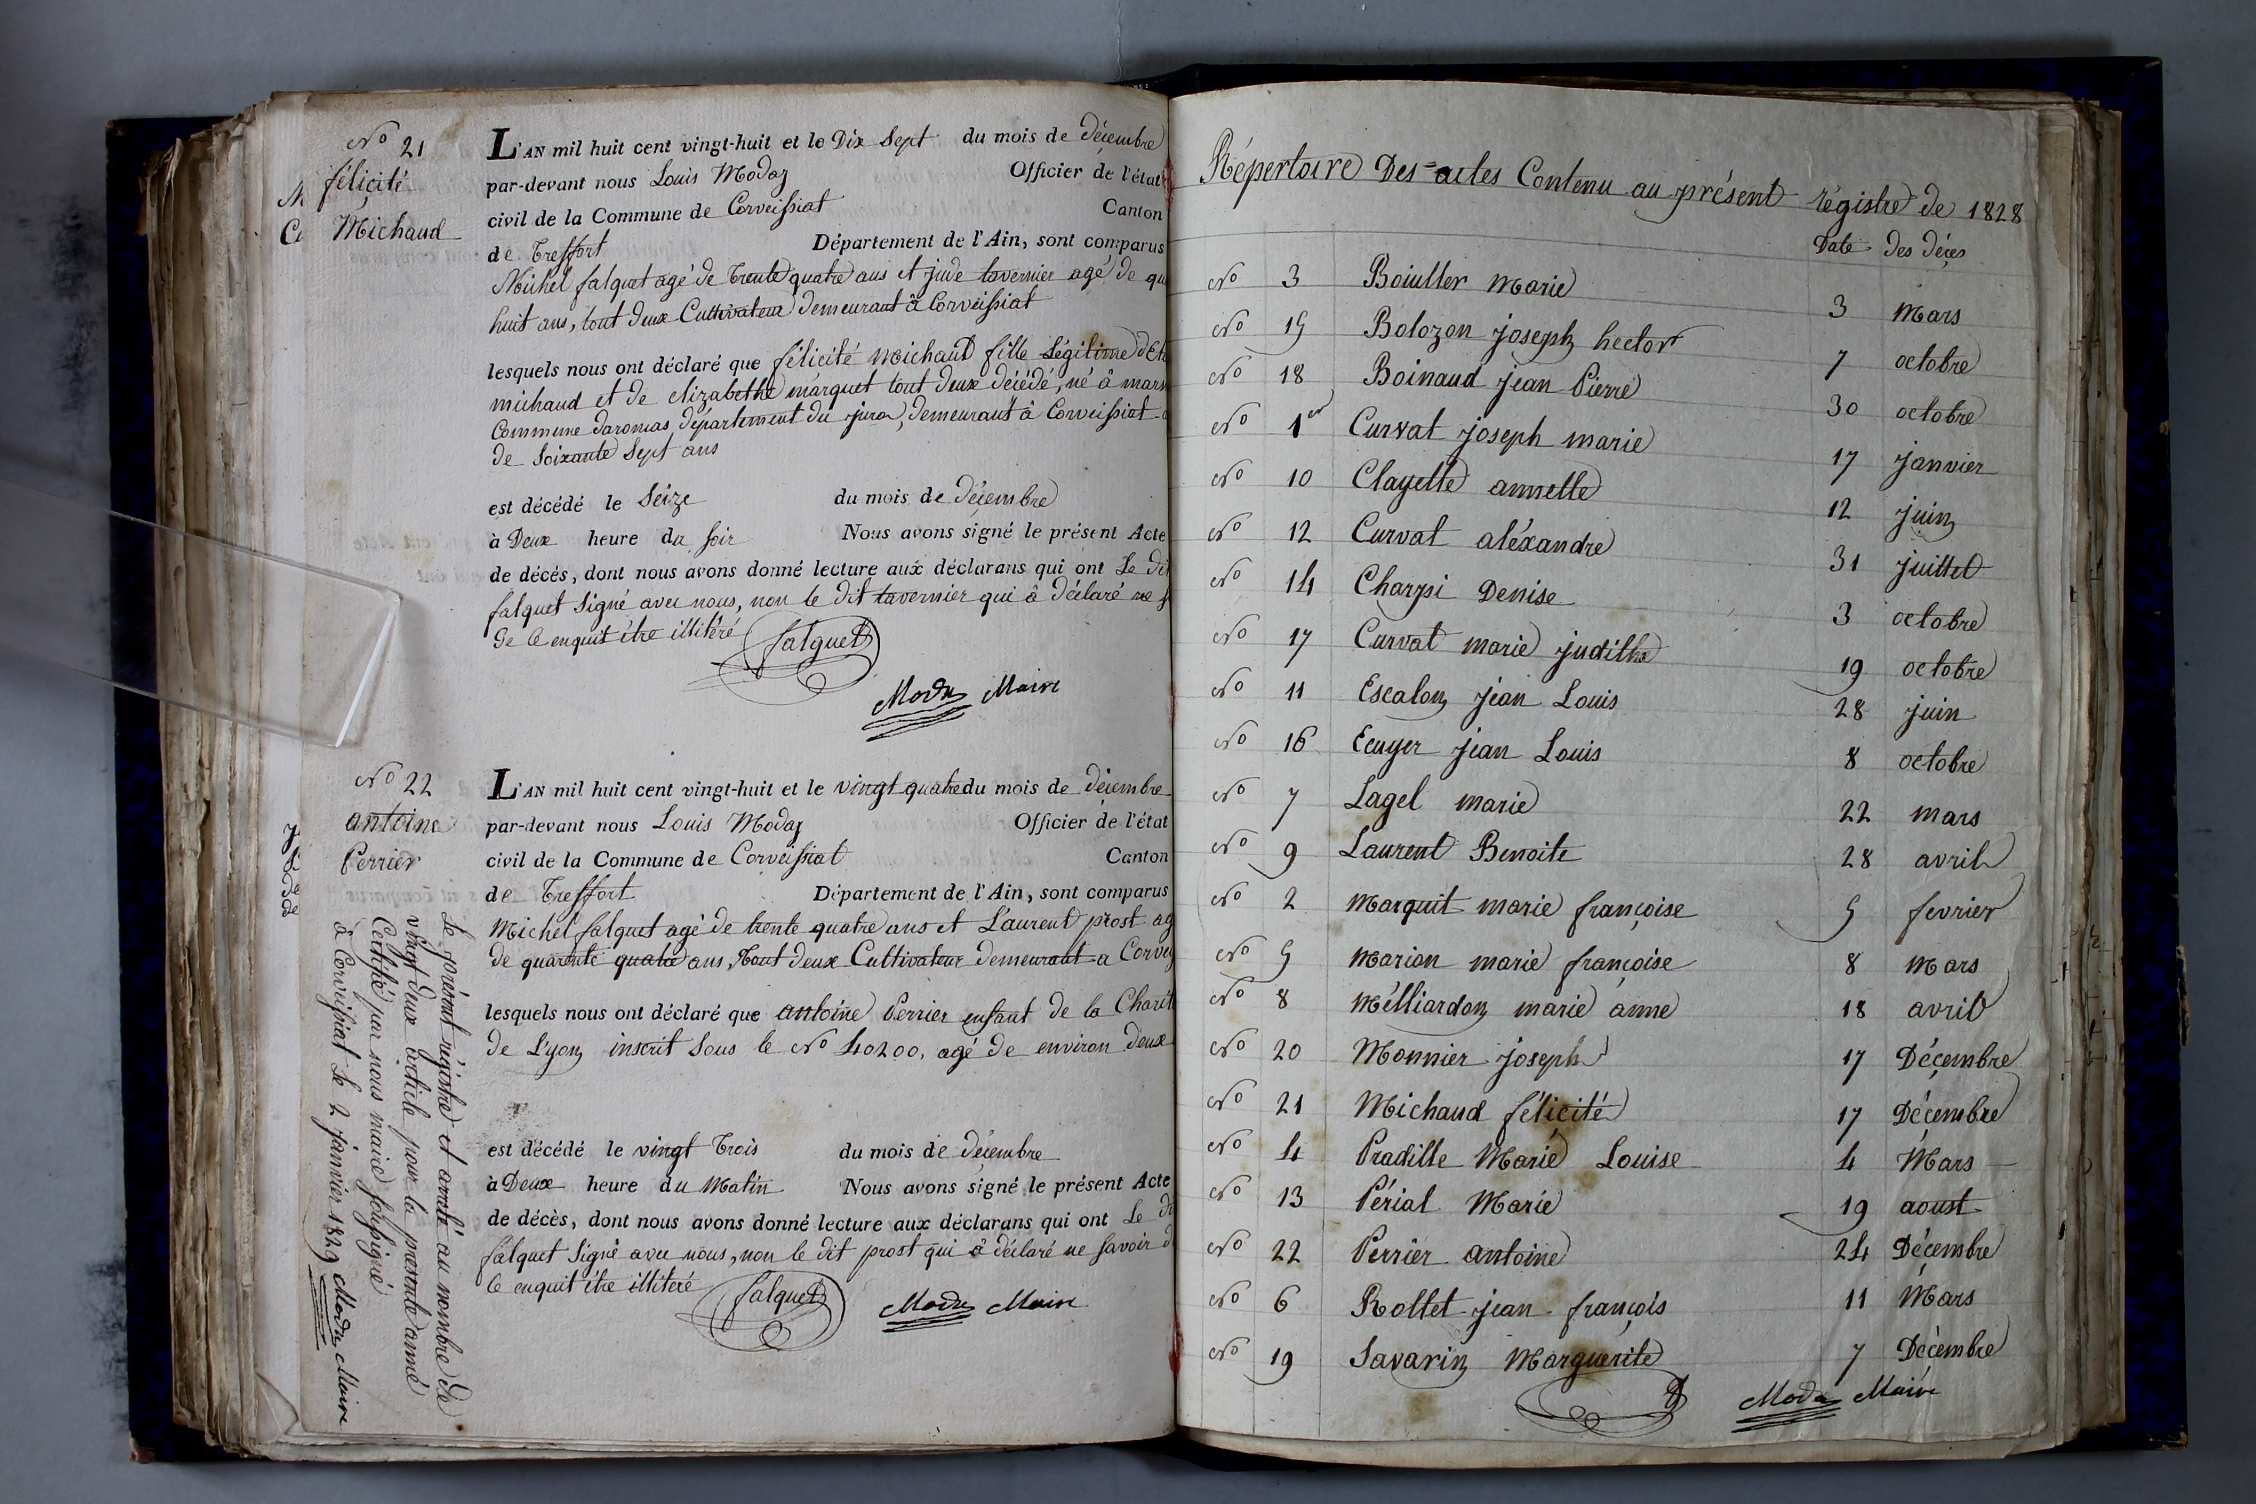 No 21
félicité
Michaud
L'AN mil huit cent vingt-huit et le Dix Sept du mois de décembre
par-devant nous Louis Moday Officier de l'état
civil de la Commune de Corveissiat Canton
de Treffort Département de l'Ain, sont comparus
Michel falquet agé de Trente quatre ans et jude tavernier agé de qu
huit ans, tout deux Cultivateur demeurant à Corveissiat
lesquels nous ont déclaré que félicité Michaud fille Légitime d'Et
michaud et de elizabethe marquet tout deux décédé, né à mars
Commune daromas département du jura, demeurant à Corveissiat a
de Soixante Sept ans
est décédé le Seize du mois de décembre
à Deux heure du soir Nous avons signé le présent Acte
de décès, dont nous avons donné lecture aux déclarans qui ont Le dit
falquet Signé avec nous, non le dit tavernier qui à déclaré ne s
de ce enquit être illitéré
falquet
Moda Maire
No 22
antoine
Perrier
L'AN mil huit cent vingt-huit et le vingt quatre du mois de décembre
par-devant nous Louis Moday Officier de l'état
civil de la Commune de Corveissiat Canton
de Treffort Département de l'Ain, sont comparus
Michel falquet agé de trente quatre ans et Laurent prost ag
de quarente quatre ans, Tout deux Cultivateur demeurant a Corvey
lesquels nous ont déclaré que antoine Perrier enfant de la Charit
de Lyon inscrit Sous le No 40200, agé de environ deux
est décédé le vingt Trois du mois de décembre
à Deux heure du Matin Nous avons signé le présent Acte
de décès, dont nous avons donné lecture aux déclarans qui ont Le di
falquet Signé avec nous, non le dit prost qui à déclaré ne savoir d
ce enquit être illiteré
falquet
Moda Maire
Le présent régistre et arrêté au nombre de
vingt deux article pour la presente année
Certifié par nous maire soussigné
à Corveissiat Le 2 janvier 1829 Moda Maire
Répertoire Des actes Contenu au présent régistre de 1828
Date des déçes
No 3 Boiuller Marie 3 Mars
No 15 Bolozon joseph hector 7 octobre
No 18 Boinaud jean Pierre 30 octobre
No 1er Curvat joseph marie 17 janvier
No 10 Clayette annette 12 juin
No 12 Curvat aléxandre 31 juillet
No 14 Charpi Denise 3 octobre
No 17 Curvat marie judithe 19 octobre
No 11 Escalon jean Louis 28 juin
No 16 Ecuyer jean Louis 8 octobre
No 7 Lagel marie 22 mars
No 9 Laurent Benoite 28 avril
No 2 Marquit marie françoise 5 fevrier
No 5 Marion marie françoise 8 Mars
No 8 Mélliardon marie anne 18 avril
No 20 Monnier joseph 17 Décembre
No 21 Michaud félicité 17 Décembre
No 4 Pradille Marie Louise 4 Mars
No 13 Périal Marie 19 aoust
No 22 Perrier antoine 24 Décembre
No 6 Rollet jean françois 11 Mars
No 19 Savarin Marguerite 7 Décembre
Moda Maire